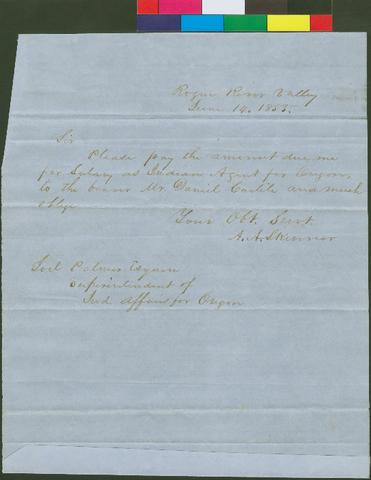 Rogue River Valley
June 14. 1853.
Sir
Please pay the amount due me
for Salary as Indian Agent for Oregon,
to the bearer Mr. Daniel and much
oblige
Your Obt. Servt.
A. A. Skinner
Joel Palmer Esquire
Superintendent of
Ind. Affairs for Oregon